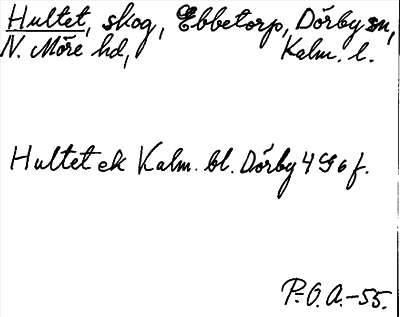 Hultet, skog, Ebbetorp, Dörby sn,
N. Möre hd, Kalm. l.
Hultet ek Kalm. bl. Dörby 4 9 o f.
P.-O. A.-55.